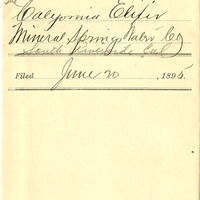 The
California Elixir
Mineral Springs Water Co
South Riverside, Cal
Filed June 20, 1895.